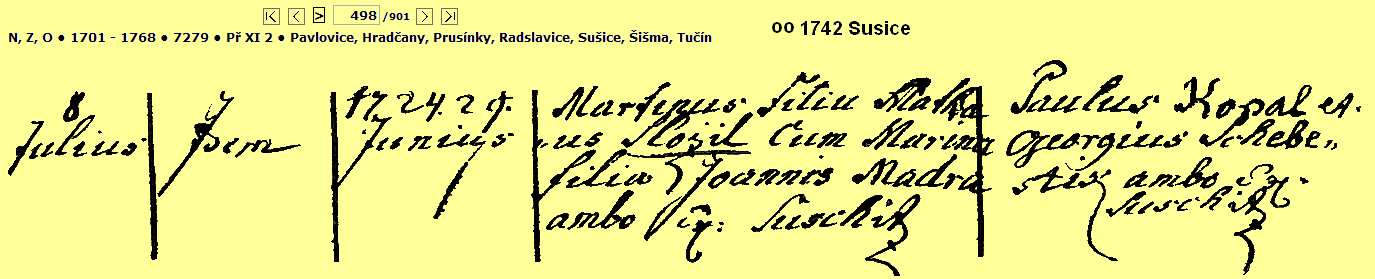 498 /901
N, Z, O • 1701 - 1768 • 7279 • Př XI 2 • Pavlovice, Hradčany, Prusínky, Radslavice, Sušice, Šišma, Tučín
oo 1742 Susice
8
Julius
Idem
17. 24. 29.
Junius
Martinus Filiu Mathae
us Slozil Cum Marina
filia Joannis Madra
ambo Ex: Suschit
Paulus Kopal et.
Georgius Schebe„
stis ambo Ex.
Suschit